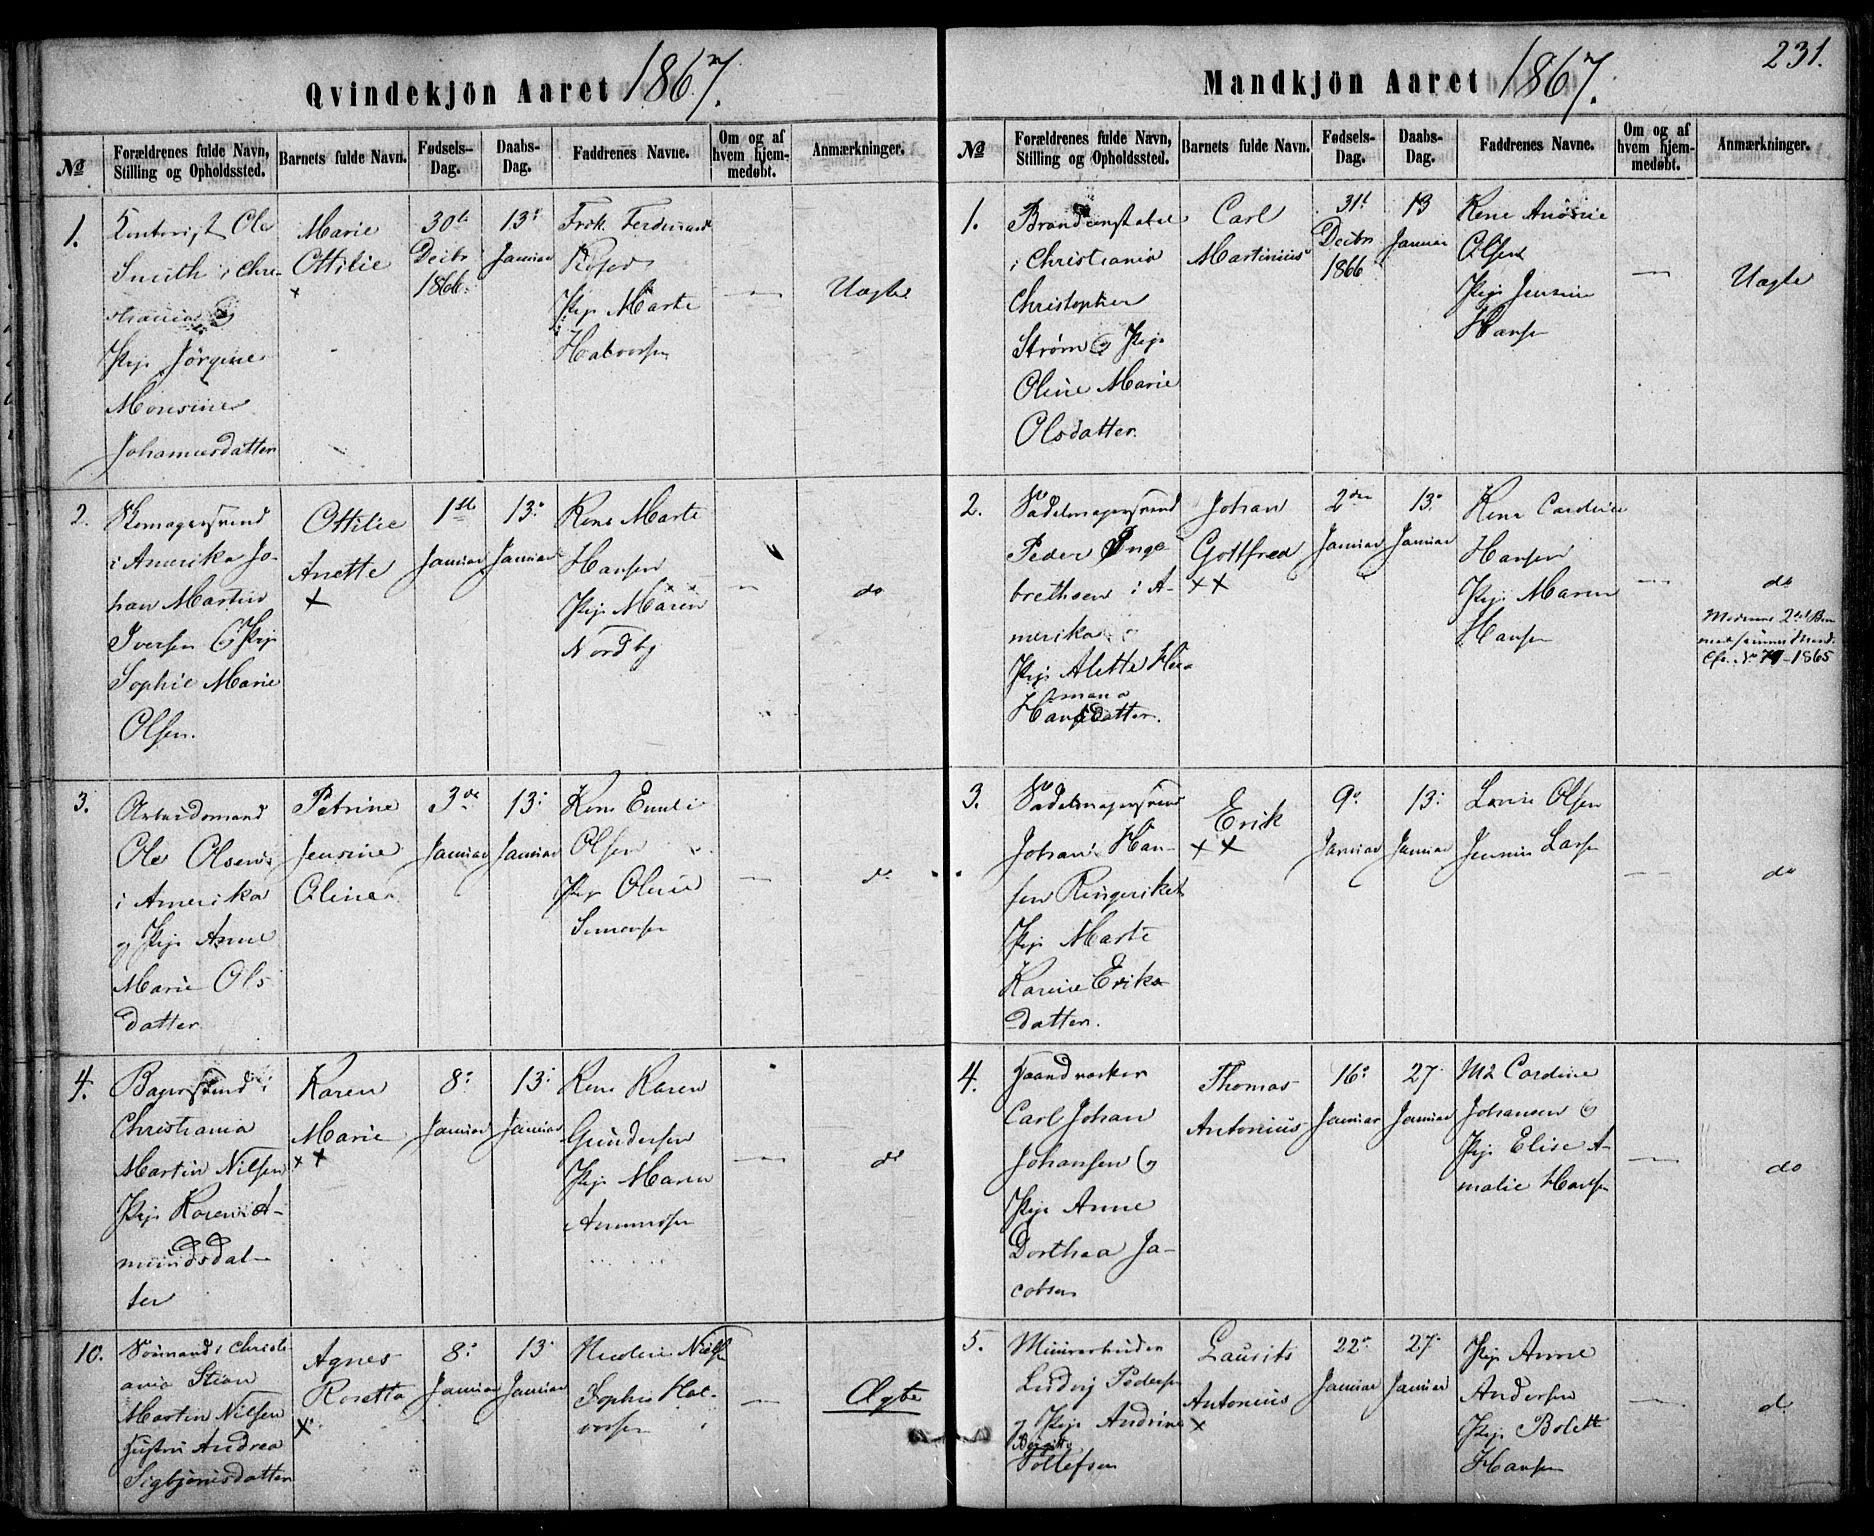 Qvindekjön Aaret 1867.
No
Forældrenes fulde Navn,
Stilling og Opholdssted.
Barnets fulde Navn.
Fødsels-
Dag.
Daabs-
Dag.
Faddrenes Navne.
Om og af
hvem hjem-
medøbt.
Anmærkninger.
1.
Ole
Smith i Chri-
stiania og
Pige Jörgine
Monsine
Johannesdatter
Marie
Ottilie
+
30te
Decbr
1866.
13de
Januar
Frik. Ferdinand
Pige Marte
Halvorsen
Uægte
2.
Skomagersvend
i Amerika Jo-
han Martin
Iversen & Pige
Sophie Marie
Olsen.
Ottilie
Anette
+
1ste
Januar
13de
Januar
Kone Marte
Hansen
Pige Maren
Nordby
do
3.
Arbeidsmand
Ole Olsen
i Amerika
og Pige Anne
Marie Ols
datter
Petrine
Jensine
Oline
3de
Januar
13:
Januar
Kone Emili
Olsen
Pige Oline
Simensen
do
4.
Bagersvend i
Christiania
Martin Nilsen
Pige Karen A-
mundsdat-
ter
Karen
Marie
+ +
8:
Januar
13:
Januar
Kone Karen
Gundersen
Pige Maren
Amundsen
do
10.
Sömand i Christi
ania Stian
Martin Nilsen
Hustru Andrea
Sigbjörnsdatter
Agnes
Rosetta
+
8:
Januar
13:
Januar
Nilsen
Sophie Hal-
vorsen
Ægte
231.
Mandkjön Aaret 1867.
No
Forældrenes fulde Navn,
Stilling og Opholdssted.
Barnets fulde Navn.
Fødsels-
Dag.
Daabs-
Dag.
Faddrenes Navne.
Om og af
hvem hjem-
medøbt.
Anmærkninger.
1.
Brandconstabel
i Christiania
Christopher
Strøm & Pige
Oline Marie
Olsdatter.
Carl
Martinius
31te
Decbr
1866
13
Januar
Kone
Olsen
Pige Jensine
Hansen
Uægte
2.
Sadelmagersvend
Peder Inge
brethsen i A-
merika og
Pige Alette Her
mana
Hansdatter.
Johan
Gottfred
+ +
2den
Januar
13:
Januar
Kone Cardine
Hansen
Pige Maren
Hansen
do
Moderens 2det Barn
med samme Mand.
Cfr. No 79-1865
3.
Sadelmagersvend
Johan Han-
sen Ringeriket
Pige Marte
Karine Eriks
datter.
Erik
+ +
9:
Januar
13:
Januar
Lovise Olsen
Jensine Larsen
do
4.
Haandværker
Carl Johan
Johansen og
Pige Anne
Dorthea Ja-
cobsen
Thomas
Antonius
16:
Januar
27.
Januar
Md Cardine
Johansen og
Pige Elise A-
malie Hansen
do
5.
Minearbeider
Ludvig Pedersen
og Pige Andrine
Birgitte
Tollefsen
Lausits
Antonius
+
22:
Januar
27:
Januar
Pige Anne
Andersen
Pige Bolett
Hansen
do